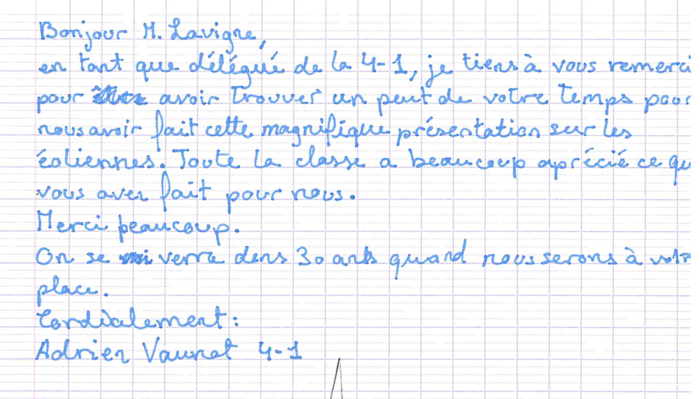 Bonjour M. Lavigne,
en tant que délégué de la 4-1, je tiens à vous remerci
pour avoir trouver un peut de votre temps pour
nous avoir fait cette magnifique présentation sur les
éoliennes. Toute la classe a beaucoup aprécié ce qu
vous avez fait pour nous.
Merci beaucoup.
On se verra dans 30 ans quand nous serons à votr
place.
Cordialement:
Adrien Vaunat 4-1